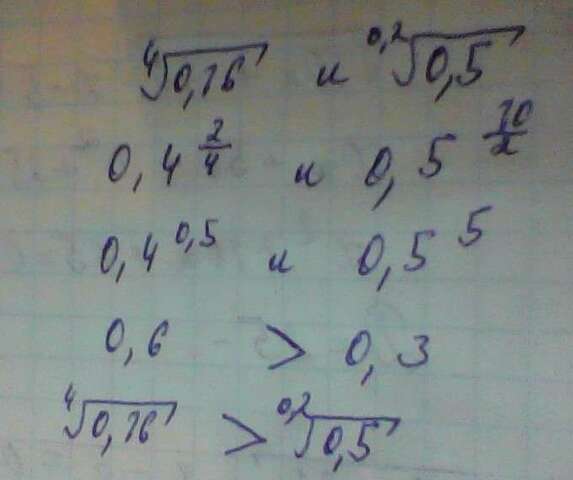 ⁴√0,16 и ⁰,²√0,5
0,4^(2/4) и 0,5^(10/2)
0,4^0,5 и 0,5^5
0,6 > 0,3
⁴√0,16 > ⁰,²√0,5